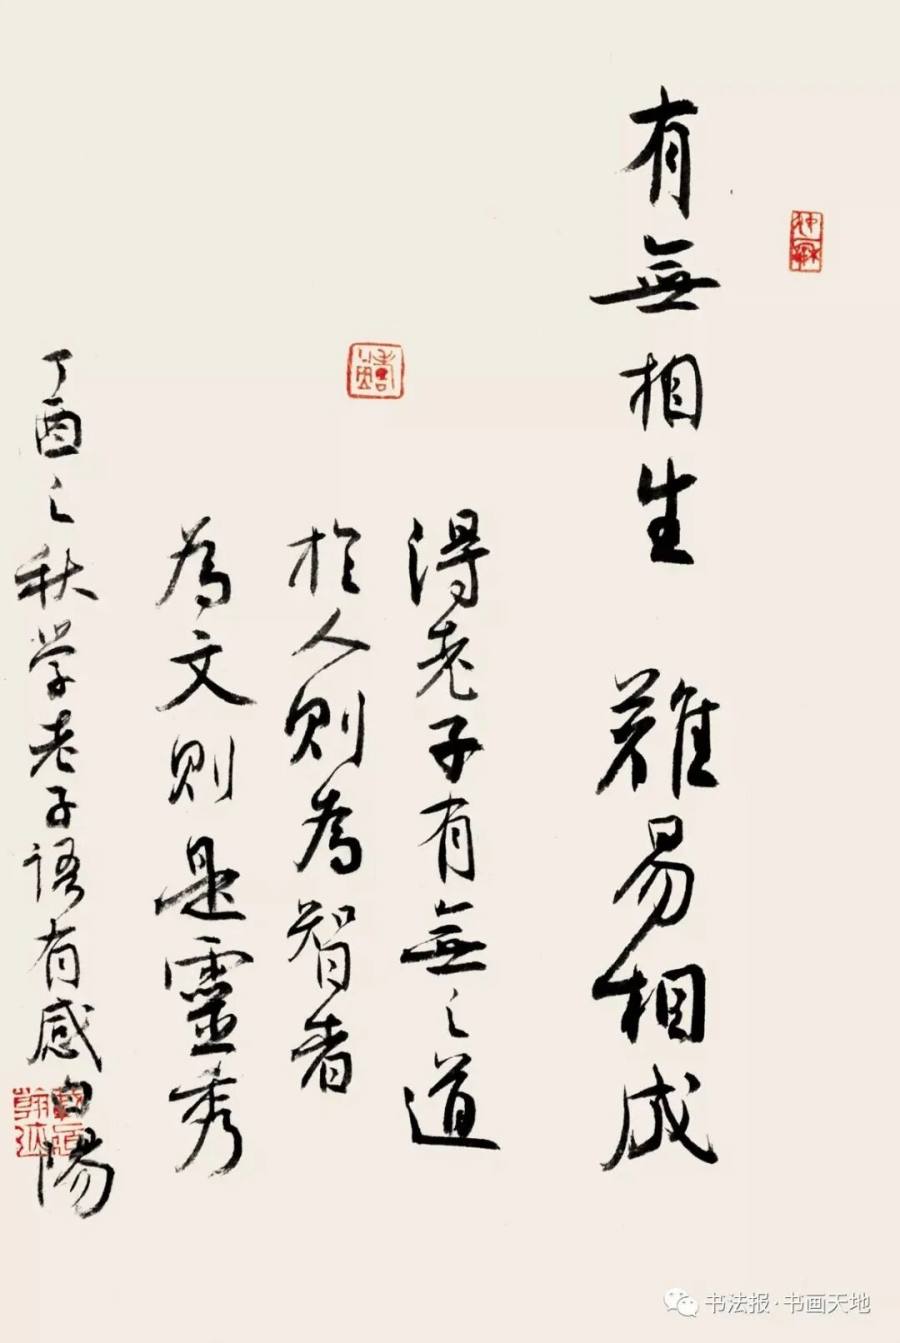 有無相生 難易相成
得老子有無之道
於人則為智者
為文則是靈秀
丁酉之秋学老子語有感白陽
书法报·书画天地